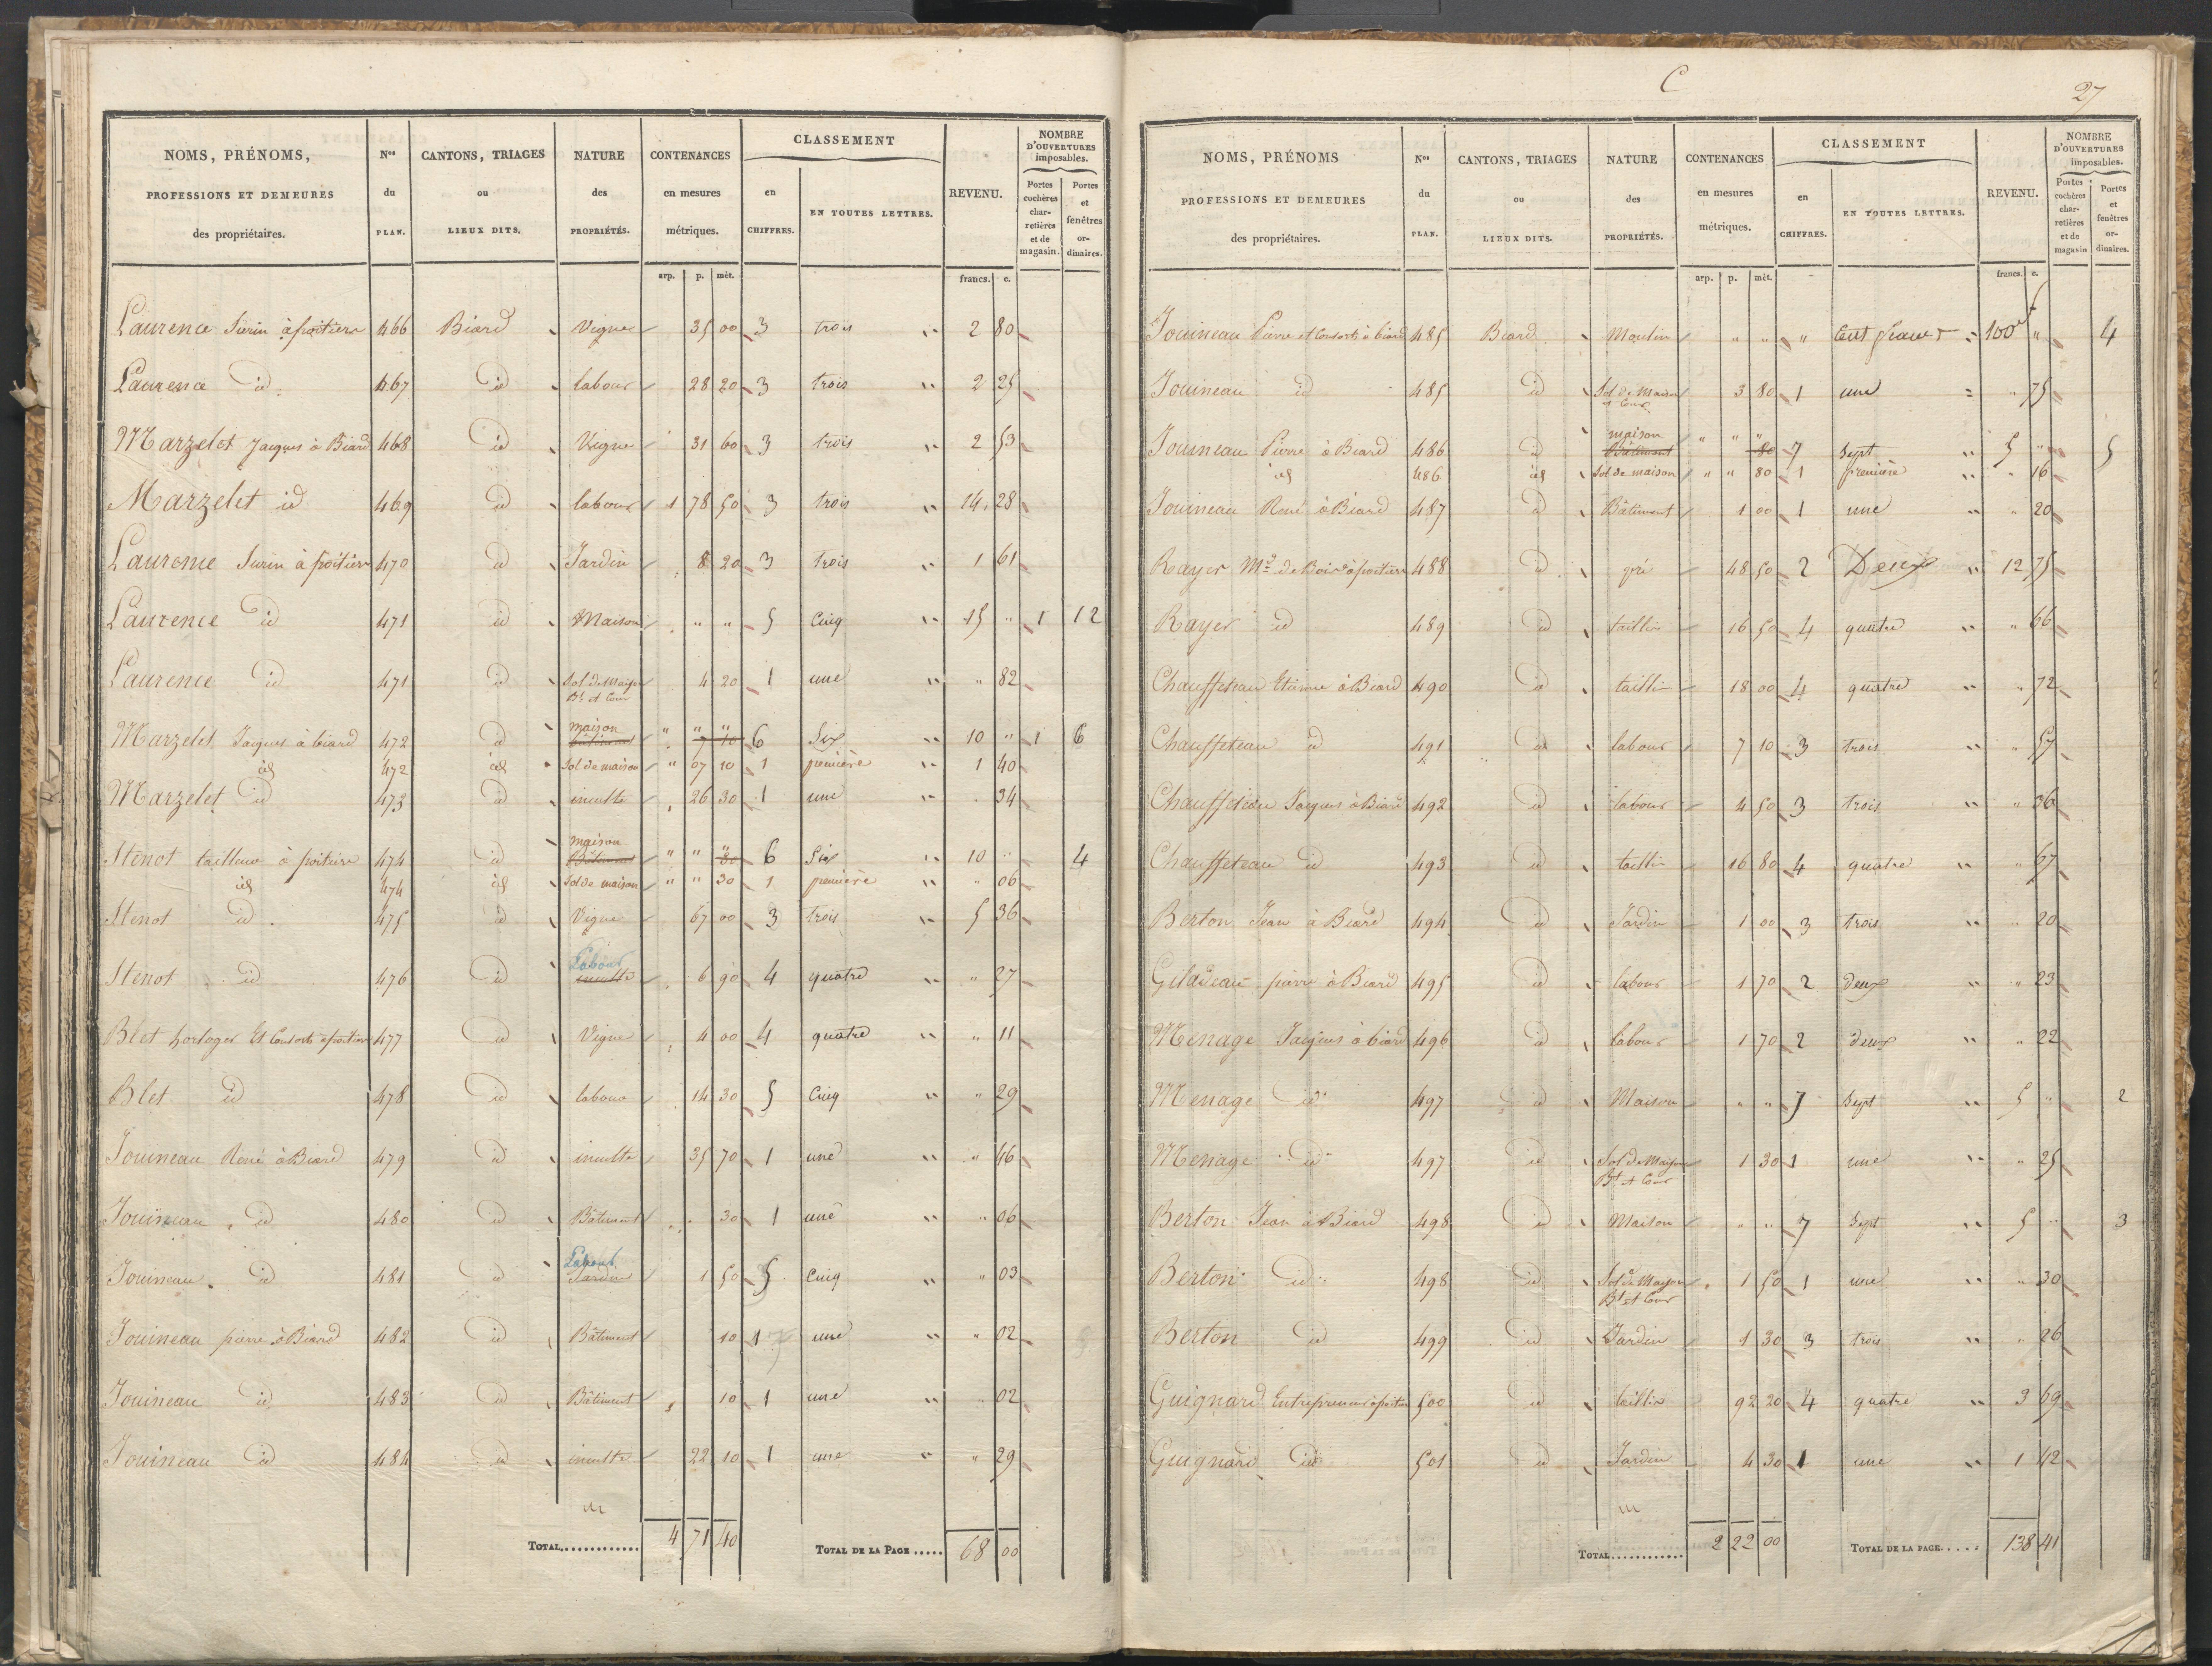 NOMS, PRÉNOMS, PROFESSIONS ET DEMEURES des propriétaires. | Nos du PLAN. | CANTONS, TRIAGES ou LIEUX DITS. | NATURE des PROPRIÉTÉS. | CONTENANCES en mesures métriques. | CLASSEMENT en CHIFFRES. | EN TOUTES LETTRES. | REVENU. | NOMBRE D'OUVERTURES imposables. Portes cochères charretières et de magasin. | Portes et fenêtres ordinaires.
arp. p. mèt. francs. c.
Laurence Surin à poitiers 466 Biard Vigne 35 00 3 trois " 2 80
Laurence id 467 id labour 28 20 3 trois " 2 25
Marzelet Jacques à Biard 468 id Vigne 31 60 3 trois " 2 53
Marzelet id 469 id labour 1 78 50 3 trois " 14 28
Laurence Surin à poitiers 470 id Jardin 8 20 3 trois " 1 61
Laurence id 471 id Maison " " 5 Cinq " 15 " 1 12
Laurence id 471 id Sol de Maison Bt et Cour 4 20 1 une " " 82
Marzelet Jacques à biard 472 id maison Bâtiment " " " 7 10 6 Six " 10 " 1 6
id 472 id Sol de maison " 07 10 1 première " 1 40
Marzelet id 473 id inculte 26 30 1 une " 34
Stenot tailleur à poitiers 474 id maison Bâtiment " " " 30 6 Six " 10 " 4
id 474 id Sol de maison " " 30 1 première " " 06
Stenot id 475 id Vigne 67 00 3 trois " 5 36
Stenot id 476 id Labour inculte 6 90 4 quatre " " 27
Blet horloger Et Consorts à poitiers 477 id Vigne 4 00 4 quatre " " 11
Blet id 478 id labour 14 30 5 Cinq " " 29
Jouineau René à Biard 479 id inculte 35 70 1 une " " 46
Jouineau id 480 id Bâtiment 30 1 une " " 06
Jouineau id 481 id Labour Jardin 1 50 5 Cinq " " 03
Jouineau pierre à Biard 482 id Bâtiment 10 1 une " " 02
Jouineau id 483 id Bâtiment 10 1 une " " 02
Jouineau id 484 id inculte 22 10 1 une " " 29
TOTAL............ 4 71 40 TOTAL DE LA PAGE ..... 68 00
C
27
NOMS, PRÉNOMS PROFESSIONS ET DEMEURES des propriétaires. | Nos du PLAN. | CANTONS, TRIAGES ou LIEUX DITS. | NATURE des PROPRIÉTÉS. | CONTENANCES en mesures métriques. | CLASSEMENT en CHIFFRES. | EN TOUTES LETTRES. | REVENU. | NOMBRE D'OUVERTURES imposables. Portes cochères charretières et de magasin | Portes et fenêtres ordinaires.
arp. p. mèt. francs. c.
Jouineau Pierre et Consorts à biard 485 Biard Moulin " " " Cent francs 100 f " 4
Jouineau id 485 id Sol de Maison et Cour 3 80 1 une " 75
Jouineau Pierre à Biard 486 id maison Bâtiment " " " 80 7 Sept " 5 " 5
id 486 id Sol de maison " " 80 1 première " " 16
Jouineau René à Biard 487 id Bâtiment 1 00 1 une " " 20
Rayer Md de Bois à poitiers 488 id pré 48 50 2 Deux " 12 75
Rayer id 489 id taillis 16 50 4 quatre " " 66
Chauffeteau Etienne à Biard 490 id taillis 18 00 4 quatre " " 72
Chauffeteau id 491 id labour 7 10 3 trois " " 57
Chauffeteau Jacques à Biard 492 id labour 4 50 3 trois " " 36
Chauffeteau id 493 id taillis 16 80 4 quatre " " 67
Berton Jean à Biard 494 id Jardin 1 00 3 trois " 20
Giladeau pierre à Biard 495 id labour 1 70 2 deux " " 23
Menage Jacques à biard 496 id labour 1 70 2 deux " " 22
Menage id 497 id Maison " " 7 Sept " 5 " 2
Menage id 497 id Sol de Maison Bt et Cour 1 30 1 une " " 25
Berton Jean à Biard 498 id Maison " " 7 Sept " 5 " 3
Berton id 498 id Sol de Maison Bt et Cour 1 50 1 une " " 30
Berton id 499 id Jardin 1 30 3 trois " " 26
Guignard Entrepreneur à poitiers 500 id taillis 92 20 4 quatre " 3 69
Guignard id 501 id Jardin 4 30 1 une " 1 42
TOTAL............ 2 22 00 TOTAL DE LA PAGE..... 138 41